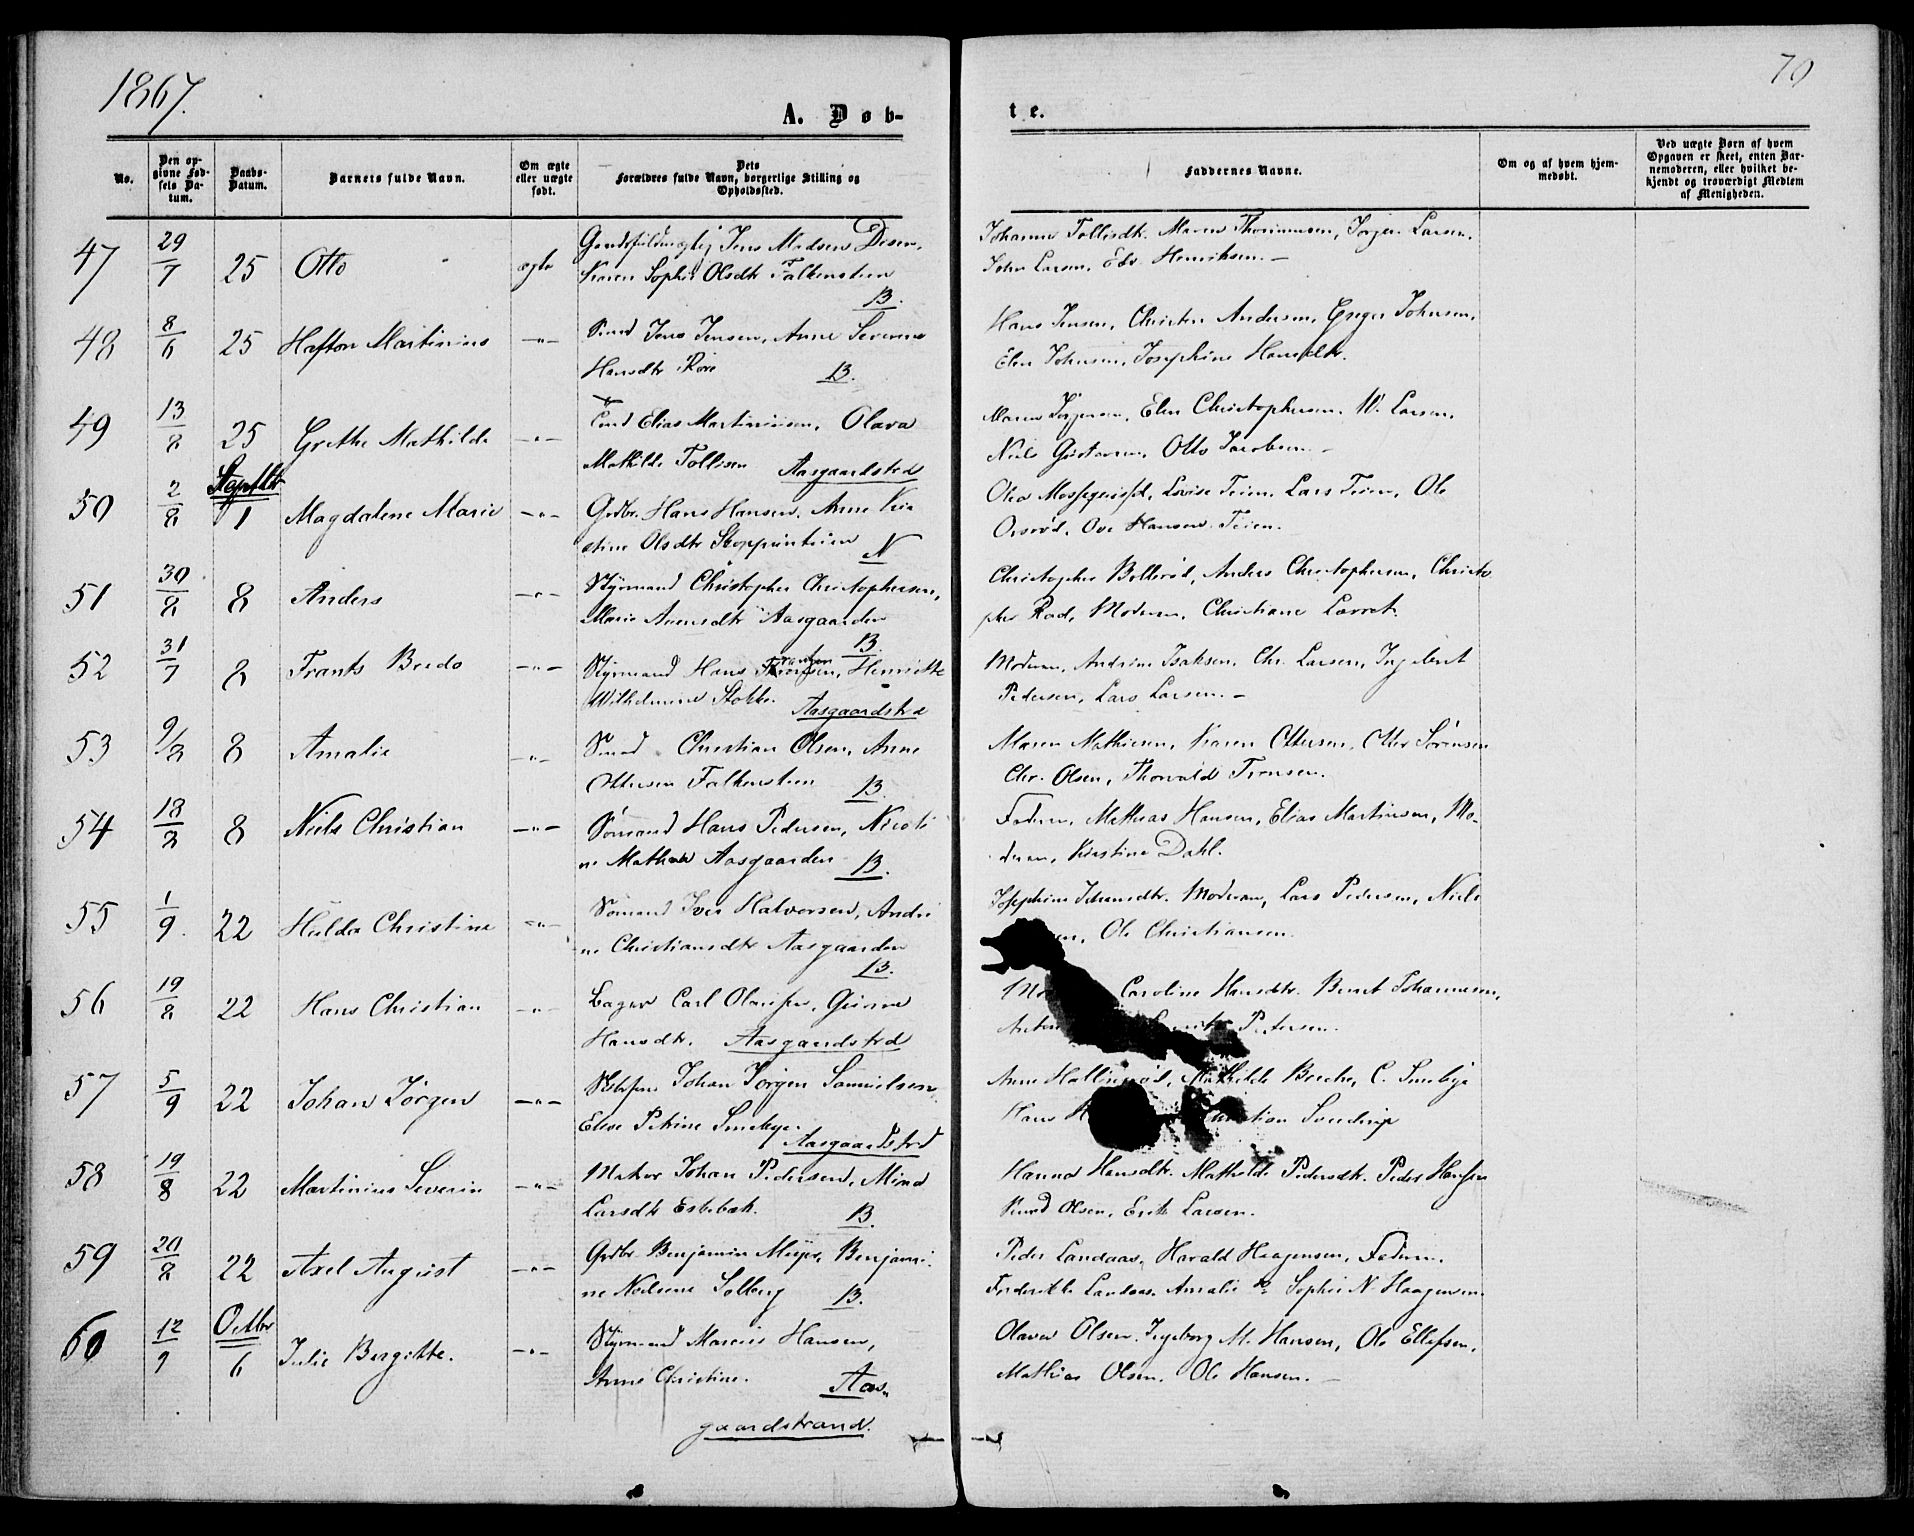 1867.
70
A. Døb-
te.
No.
Den opgivne Fødsels Datum.
Daabs-Datum.
Barnets fulde Navn.
Om ægte eller uægte født.
Dets Forældres fulde Navn, borgerlige Stilling og Opholdssted.
Faddernes Navne.
Om og af hvem hjemmedøbt.
Ved uægte Børn af hvem Opgaven er skeet, enten Barnemoderen, eller hvilket bekjendt og troværdigt Medlem af Menigheden.
47 29/7 25 Otto ægte Jens Madsen
Karen Sophie Olsdtr Falkensteen
B.
Johanne Tollisdtr. Maren Thorsen, Jørgen Larsen,
John Larsen, Edv. Henriksen. —
48 8/6 25 Hafton Martinius —"— Smd Jens Jensen, Anne Severine
Hansdtr Røre B.
Hans Jensen, Christen Andersen, Greger Johnsen,
Elen Johnsen, Josephine Hansdtr.
49 13/8 25 Grethe Mathilde —"— Elias Martinsen, Olava
Mathilde Tollisen Aasgaardstrd
Maren Jørgensen, Elen Christophersen. W. Larsen,
Niels Gustavsen, Otto Jacobsen. —
Septbr
50 2/8 1 Magdalene Marie —"— Grdbr. Hans Hansen, Anne Kri
stine Olsdtr N
Lovise Teien, Lars Teien, Ole
Ove Hansen Teien.
51 30/8 8 Anders —"— Styrmand Christopher Christophersen,
Marie Aasgaarden
B.
Christopher Bollerød, Anders Christophersen, Christo
pher Rød, Moderen, Christiane
52 31/7 8 Frants Bredo —"— Styrmand Hans Frantsen, Henriette
Wilhelmine Stokke. Aasgaardstrd
Moderen, Andrine Isaksen, Chr. Larsen, Ingebret
Pedersen, Lars Larsen. —
53 9/8 8 Amalie —"— Smd Christian Olsen, Anne
Ottersen Falkensteen B.
Maren Mathisen, Karen Ottersen, Otter Sørensen
Chr. Olsen, Thorvald Tronsen.
54 18/8 8 Niels Christian —"— Sømand Hans Pedersen, Nicoli
ne Aasgaarden B.
Faderen, Mathias Hansen, Elias Martinsen, Mo-
deren, Kirstine Dahl.
55 1/9. 22 Hulda Christine —"— Sømand Iver Halvorsen, Andri
ne Christiansdtr Aasgaarden
B.
Josephine Johansdtr. Moderen, Lars Pedersen, Niels
Ole Christiansen.
56 19/8 22 Hans Christian —"— Bager Carl
Hansdtr. Aasgaardstrd
Caroline Hansdtr. Bernt Johannesen,
Petersen.
57 5/9 22 Johan Jørgen —"— Johan Jørgen Samuelsen,
Elise Petrine Smebye. Aasgaardstrd
Anne Mathilde C. Smebye
Hans
58 19/8 22 Martinius Severin —"— Johan Pedersen, Mina
Larsdtr Eskebæk. B.
Hanna Hansdtr. Mathilde Pedersdtr. Peder Hansen
Knud Olsen, Erik Larsen.
59 20/8 22 Axel August —"— Grdbr. Benjamin Meyer, Benjami-
ne Neilsine Solberg B.
Peder Landaas, Harald Haagensen, Faderen.
Frederikke Landaas, Amalie do Sophie N. Haagensen.
Octbr
60 12/9 6 Julie Bergitte. —"— Styrmand Marcus Hansen,
Anne Christine. Aas-
gaardstrand.
Olava Olsen. Ingeborg M. Hansen, Ole Ellefsen,
Mathias Olsen. Ole Hansen. —